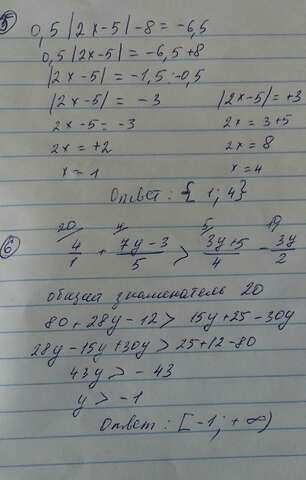 5
0,5 |2x-5| -8 = -6,5
0,5 |2x-5| = -6,5 + 8
|2x-5| = -1,5 : -0,5
|2x-5| = -3 |2x-5| = +3
2x-5 = -3 2x = 3+5
2x = +2 2x = 8
x = 1 x = 4
Ответ: {1; 4}
20/ 4/ 5/ 10/
6 4/1 + 7y-3/5 > 3y+5/4 - 3y/2
общий знаменатель 20
80 + 28y - 12 > 15y + 25 - 30y
28y - 15y + 30y > 25 + 12 - 80
43y > -43
y > -1
Ответ: [-1; +∞)